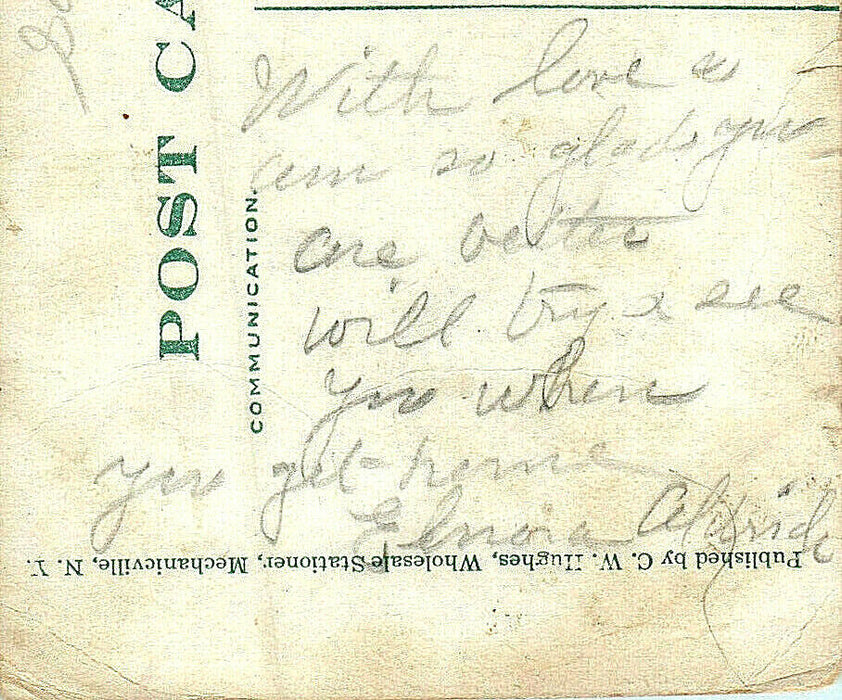 POST CA
COMMUNICATION.
With love &
am so glad you
are better
will try & see
you when
you get home
Elnora
Published by C. W. Hughes, Wholesale Stationer, Mechanicville, N. Y.